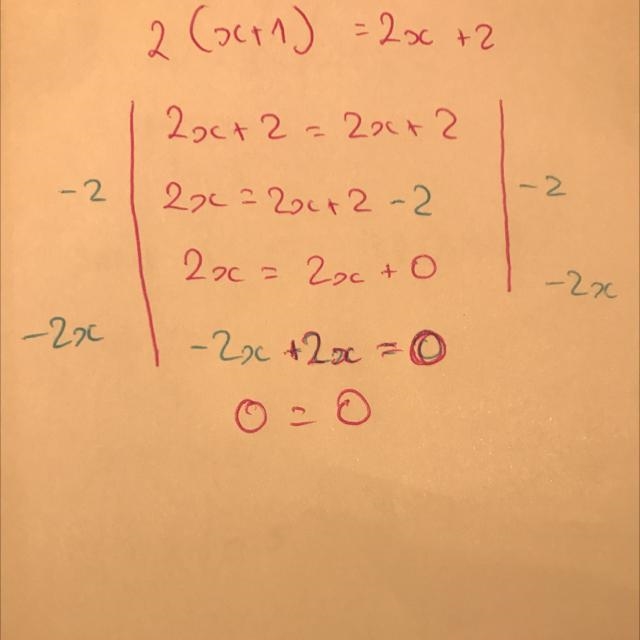 2 (x+1) = 2x + 2
2x + 2 = 2x + 2
-2 2x = 2x + 2 - 2 -2
2x = 2x + 0 -2x
-2x -2x + 2x = 0
0 = 0